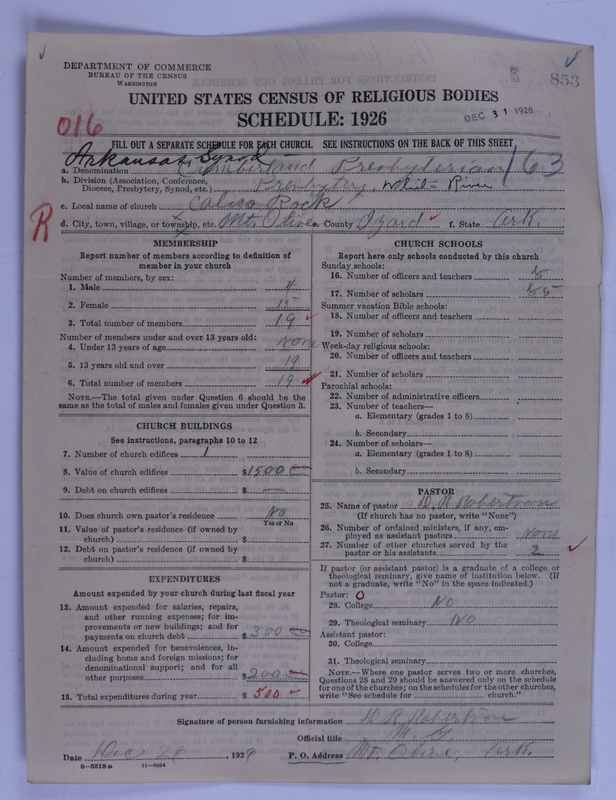 DEPARTMENT OF COMMERCE
BUREAU OF THE CENSUS
WASHINGTON
853
UNITED STATES CENSUS OF RELIGIOUS BODIES
SCHEDULE: 1926
DEC 31 1926
016
FILL OUT A SEPARATE SCHEDULE FOR EACH CHURCH. SEE INSTRUCTIONS ON THE BACK OF THIS SHEET
Arkansas Synod
163
a. Denomination Cumberland Presbyterian
b. Division (Association, Conference, Diocese, Presbytery, Synod, etc.) Presbytery, White River
c. Local name of church Calico Rock
R
d. City, town, village, or township, etc. Mt. Olive e. County Izard f. State Ark.
MEMBERSHIP
Report number of members according to definition of
member in your church
Number of members, by sex:
1. Male 4
2. Female 15
3. Total number of members 19
Number of members under and over 13 years old:
4. Under 13 years of age none
5. 13 years old and over 19
6. Total number of members 19
NOTE.—The total given under Question 6 should be
same as the total of males and females given under Question 3.
CHURCH BUILDINGS
See instructions, paragraphs 10 to 12
7. Number of church edifices 1
8. Value of church edifices $1500
9. Debt on church edifices $
10. Does church own pastor's residence? No
Yes or No
11. Value of pastor's residence (if owned by
church) $
12. Debt on pastor's residence (if owned by
church) $
EXPENDITURES
Amount expended by your church during last fiscal year
13. Amount expended for salaries, repairs,
and other running expenses; for im-
provements or new buildings; and for
payments on church debt $300
14. Amount expended for benevolences, in-
cluding home and foreign missions; for
denominational support; and for all
other purposes $200
15. Total expenditures during year $500
CHURCH SCHOOLS
Report here only schools conducted by this church
Sunday schools:
16. Number of officers and teachers
17. Number of scholars
Summer vacation Bible schools:
18. Number of officers and teachers
19. Number of scholars
Week-day religious schools:
20. Number of officers and teachers
21. Number of scholars
Parochial schools:
22. Number of administrative officers
23. Number of teachers—
a. Elementary (grades 1 to 8)
b. Secondary
24. Number of scholars—
a. Elementary (grades 1 to 8)
b. Secondary
PASTOR
25. Name of pastor D. R. Robertson
(If church has no pastor, write "None")
26. Number of ordained ministers, if any, em-
ployed as assistant pastors None
27. Number of other churches served by the
pastor or his assistants 2
If pastor (or assistant pastor) is a graduate of a college or
theological seminary, give name of institution below. (If
not a graduate, write "No" in the space indicated.)
Pastor: O
28. College No
29. Theological seminary No
Assistant pastor:
30. College
31. Theological seminary
NOTE.—Where one pastor serves two or more churches,
Questions 28 and 29 should be answered only on the schedule
for one of the churches; on the schedules for the other churches,
write "See schedule for church."
Signature of person furnishing information D. R. Robertson
Official title M. G.
Date Dec 28, 192 P. O. Address Mt. Olive, Ark.
8—5518a 11—9224